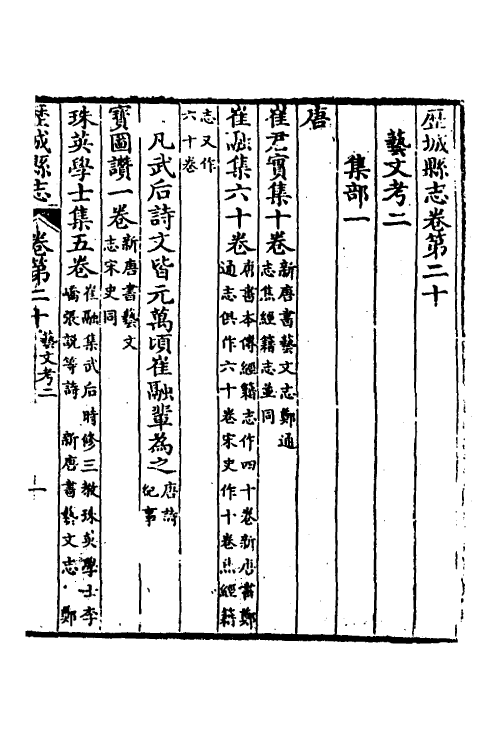 歷城縣志卷第二十
藝文考二
集部一
唐
崔君實集十卷新唐書藝文志鄭通
志焦經籍志並同
崔融集六十卷唐書本傳經籍志作四十卷新唐書鄭
通志俱作六十卷宋史作十卷焦經籍
志又作
六十卷
凡武后詩文皆元萬頃崔融輩為之唐詩
紀事
寶圖讚一卷新唐書藝文
志宋史同
珠英學士集五卷崔融集武后時修三教珠英學士李
嶠張說等詩 新唐書藝文志·鄭
歷城縣志 卷第二十 藝文考二 一